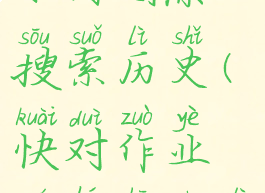 sōu suǒ lì shǐ
搜索历史(
kuài duì zuò yè
快对作业